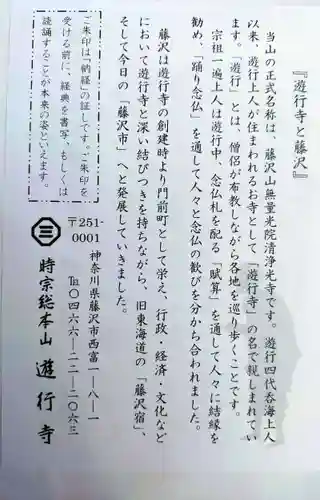 『遊行寺と藤沢』
当山の正式名称は、藤沢山無量光院清浄光寺です。遊行四代呑海上人
以来、遊行上人が住まわれるお寺として「遊行寺」の名で親しまれてい
ます。「遊行」とは、僧侶が布教しながら各地を巡り歩くことです。
宗祖一遍上人は遊行中、念仏札を配る「賦算」を通して人々に結縁を
勧め、「踊り念仏」を通して人々と念仏の歓びを分かち合われました。
藤沢は遊行寺の創建時より門前町として栄え、行政・経済・文化など
において遊行寺と深い結びつきを持ちながら、旧東海道の「藤沢宿」、
そして今日の「藤沢市」へと発展していきました。
ご朱印は「納経」の証しです。ご朱印を
受ける前に、経典を書写、もしくは
読誦することが本来の姿といえます。
〒251-0001
神奈川県藤沢市西富一―八―一
℡〇四六六―二二―二〇六三
時宗総本山 遊行寺